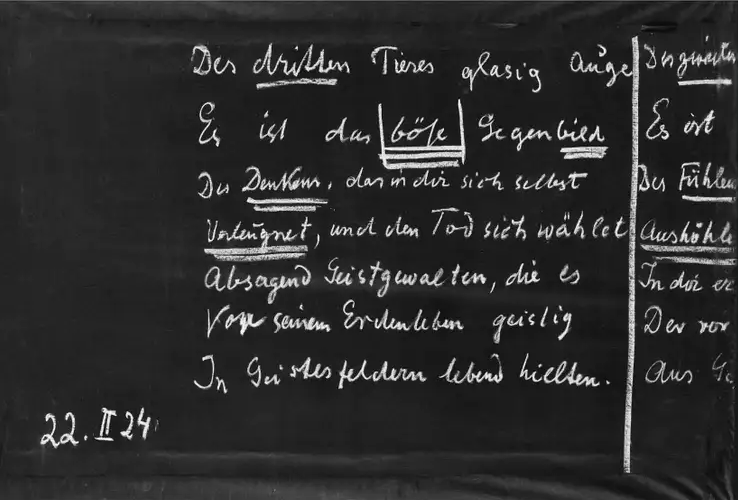 Des dritten Tieres glasig Auge
Es ist das böse Gegenbild
Des Denkens, das in dir sich selbst
Verleugnet, und den Tod sich wählet
Absagend Geistgewalten, die es
Vor seinem Erdenleben geistig
In Geistesfeldern lebend hielten.
22. II 24
Des zweiten
Es ist
Des Fühlens
Aushöhle
In dir
Der vor
Aus